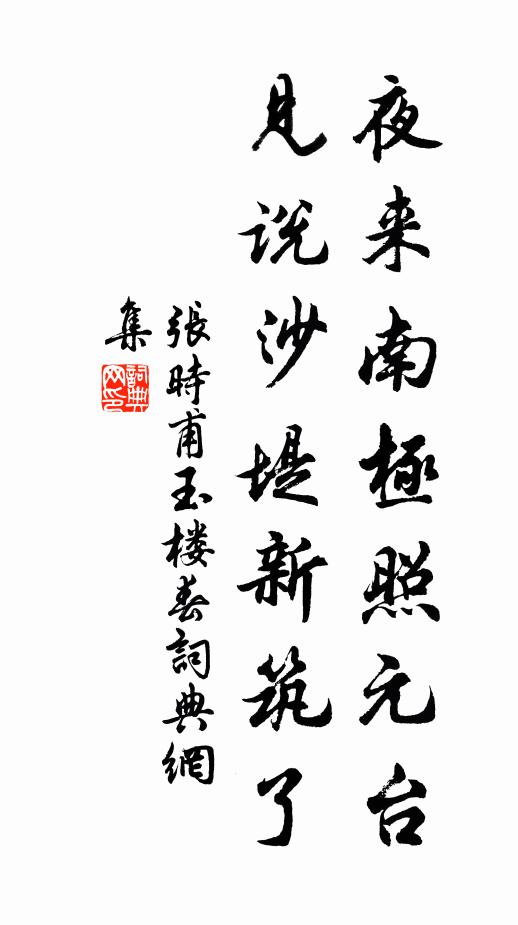 夜来南極照元台
見说沙堤新筑了
張時甫玉楼春詞典網
集
詞典
网印